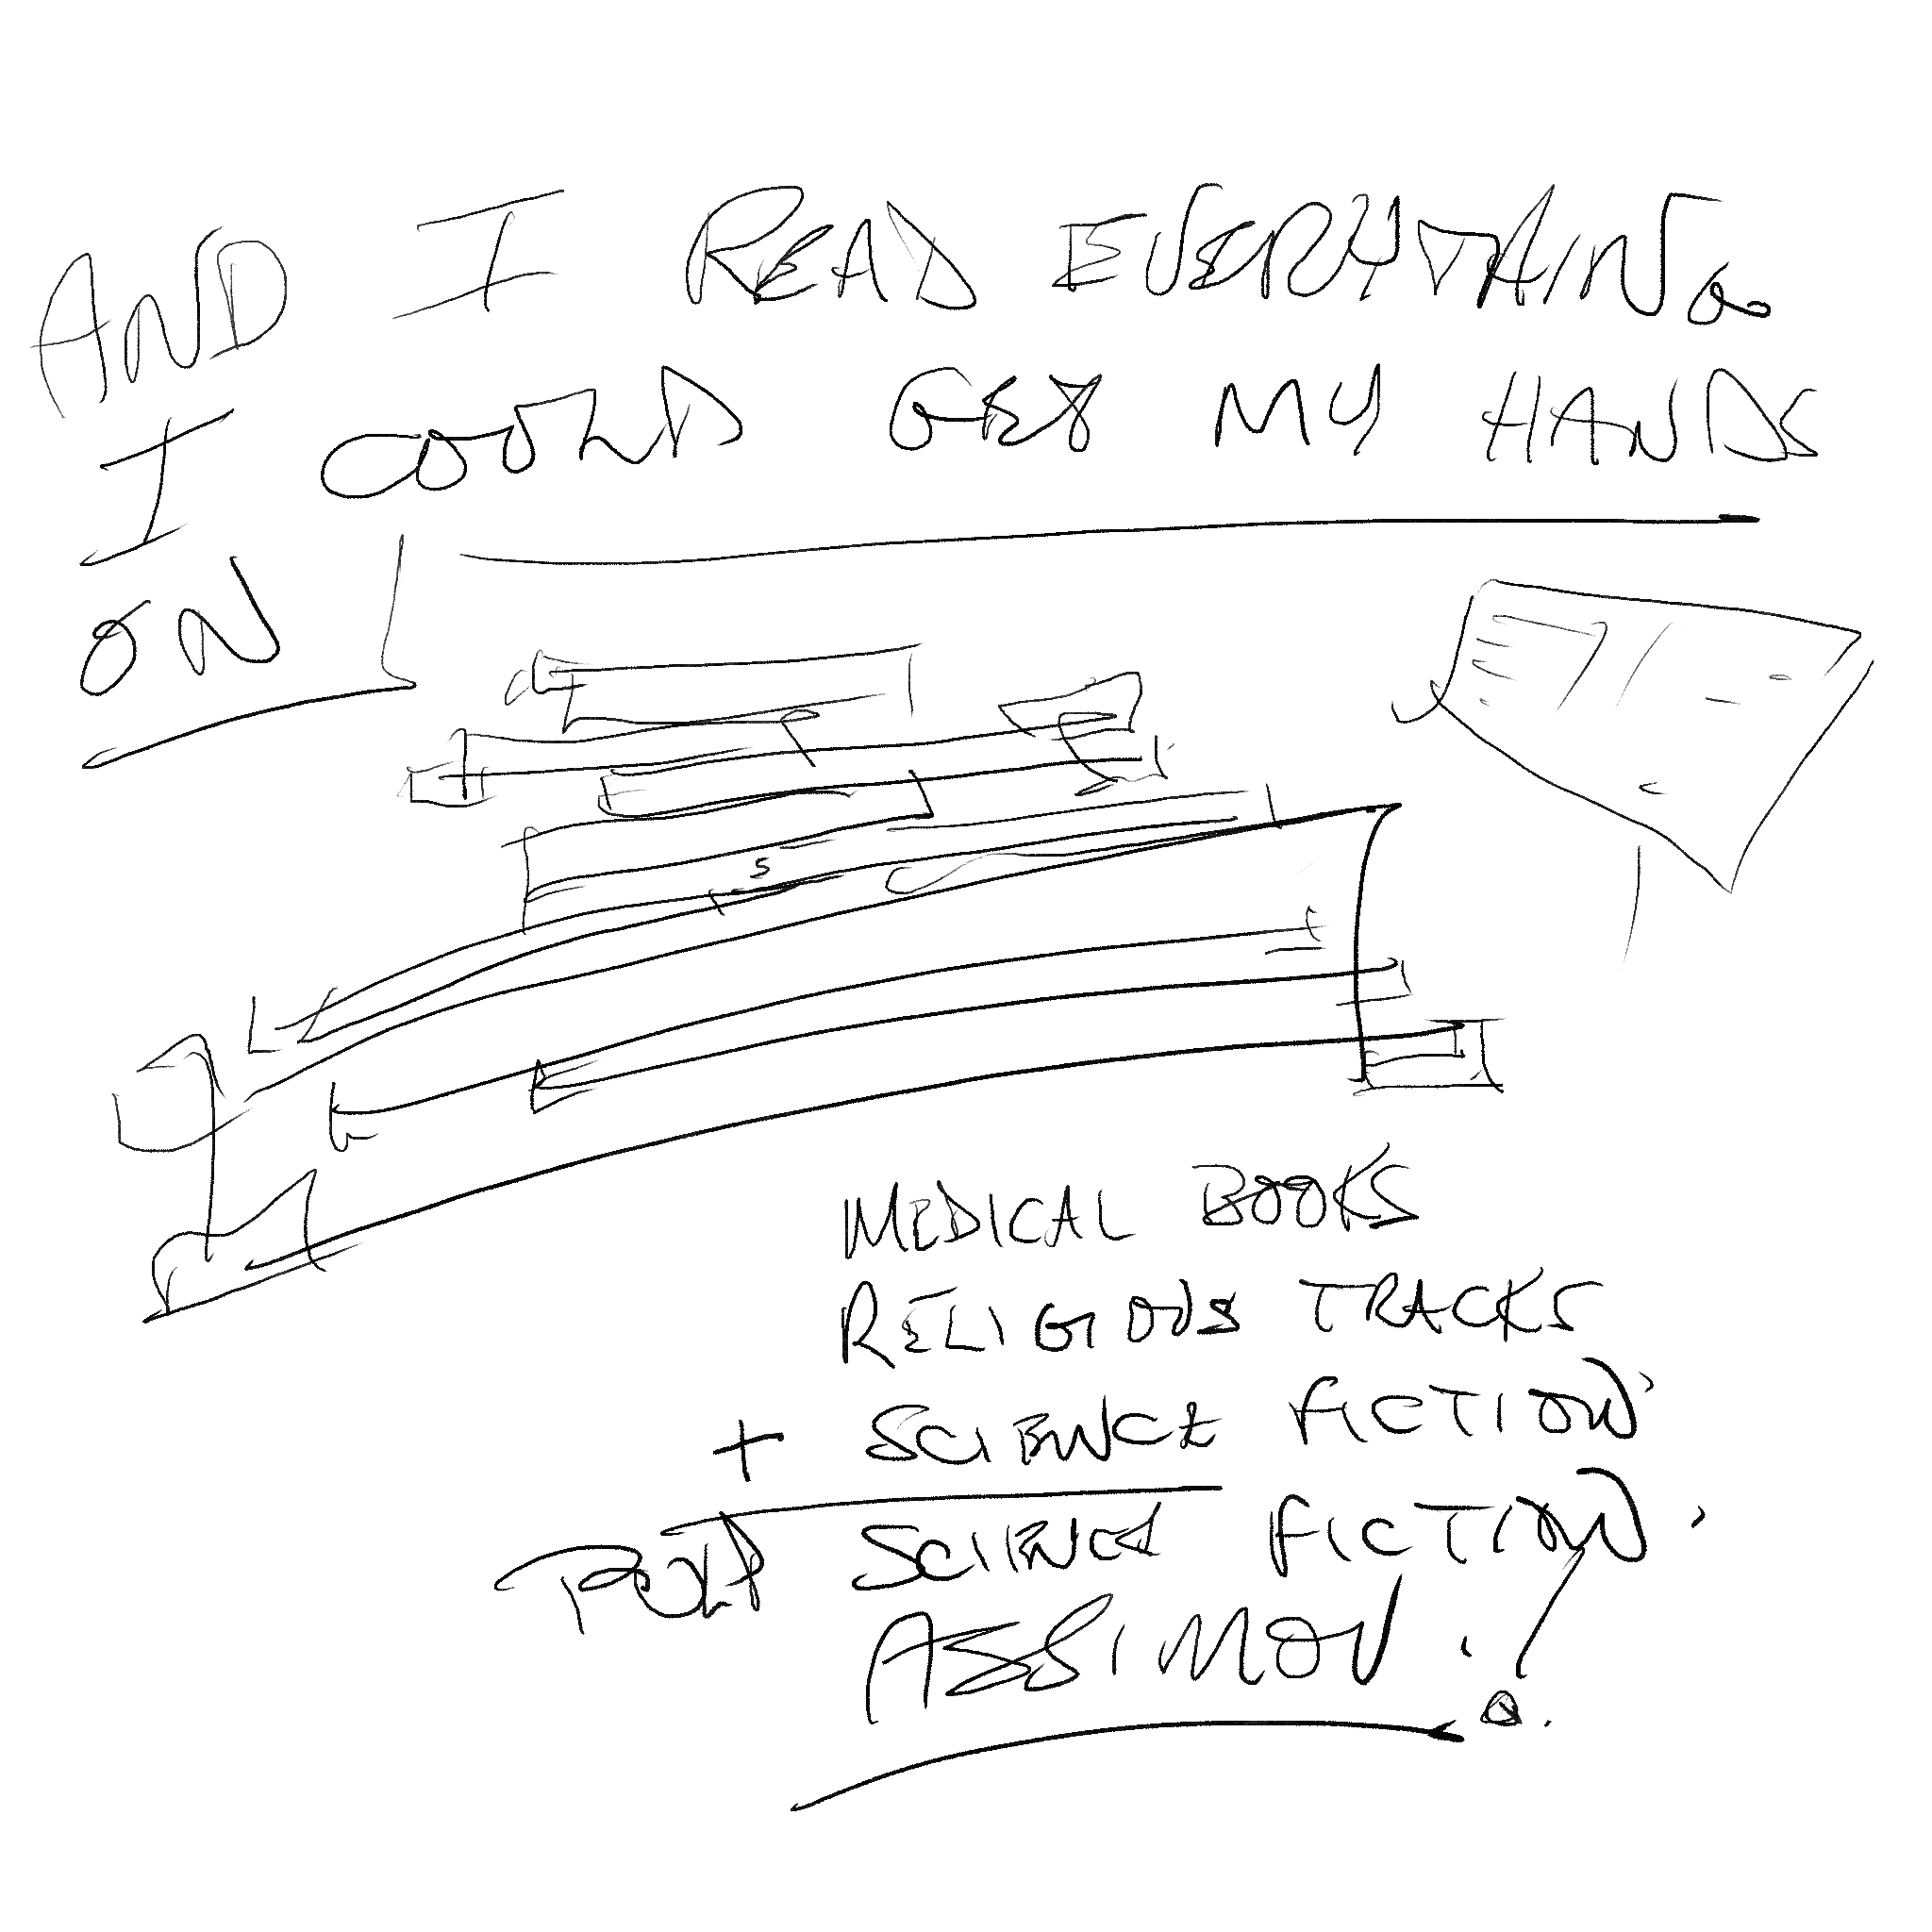 AND I READ EVERYTHING
I COULD GET MY HANDS
ON
MEDICAL BOOKS
RELIGIOUS TRACKS
+ SCIENCE FICTION
PULP SCIENCE FICTION.
ASSIMOV.!